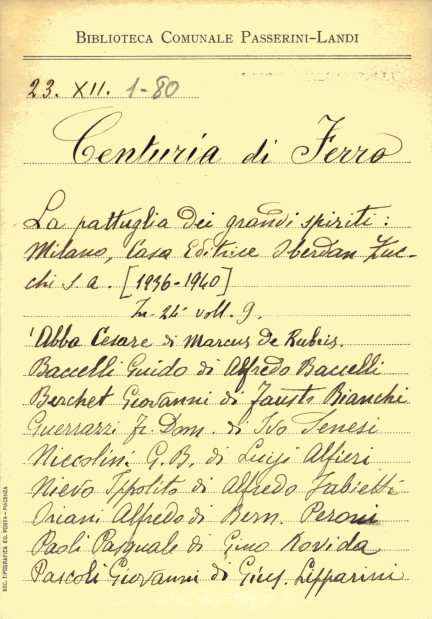 BIBLIOTECA COMUNALE PASSERINI-LANDI
23. XII. 1-80
Centuria di Ferro
La pattuglia dei grandi spiriti:
Milano, Casa Editrice Oberdan Zuc-
chi s.a. [1936-1940]
In-24° voll. 9.
Abba Cesare di Marcus De Rubris.
Baccelli Guido di Alfredo Baccelli
Berchet Giovanni di Fausto Bianchi
Guerrazzi Fr. Dom. di Ivo Senesi
Niccolini G.B. di Luigi Alfieri
Nievo Ippolito di Alfredo Fabietti
Oriani Alfredo di Bern. Peroni
Paoli Pasquale di Gino Rovida
Pascoli Giovanni di Gius. Lipparini
SOC. TIPOGRAFICA ED. PORTA - PIACENZA